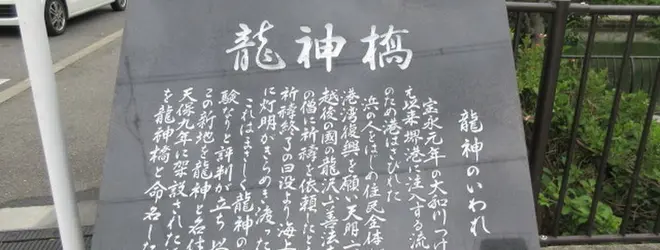 龍神橋
龍神のいわれ
宝永元年の大和川つけ
え以来堺港に注入する流
のため港はさびれた
浜の人はじめ住民全体
港湾復興を願い天明
越後の國の龍沢山善法
の僧に祈祷を依頼したと
祈祷終了の日没より海上
に灯明がきらめき渡った
これはまさしく龍神の
験なりと評判が立ち
この新地を龍神と名付
天保九年に架設された
を龍神橋と命名した